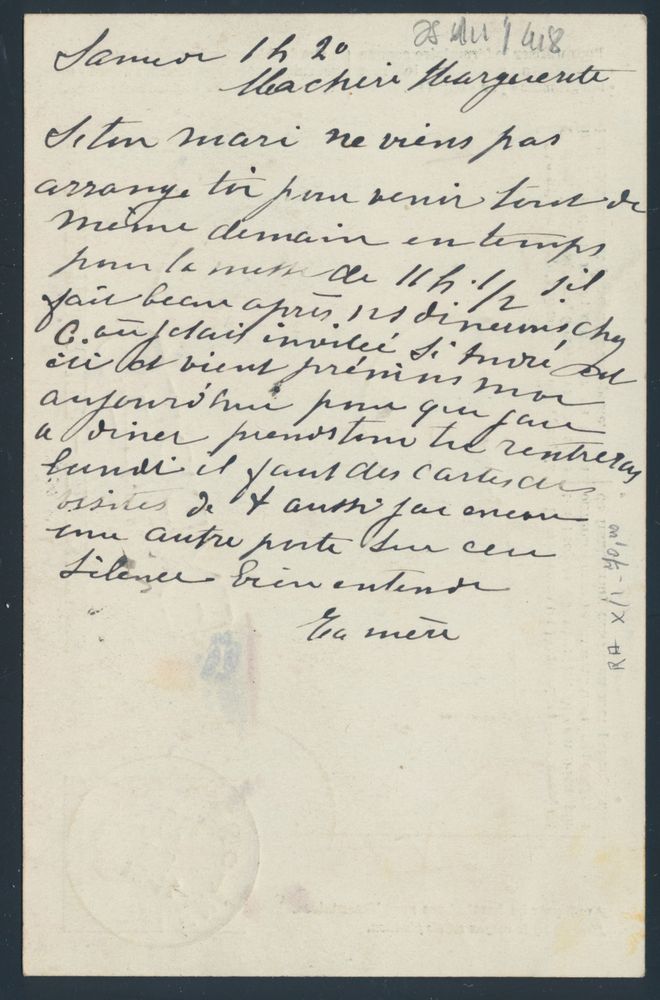 Samedi 1 h 20
Ma chère Marguerite
Si ton mari ne viens pas
arrange toi pour venir tout de
même demain en temps
pour la messe de 11 h. 1/2 s'il
fait beau après ns dinerons chez
C. où j'étais invitée Si André est
ici et vient préviens moi
aujourd'hui pour que j'aie
a diner prends ton tu rentreras
lundi il faut des cartes de
visites de + aussi j'ai encore
une autre porte sur ceci
silence bien entendu
Ta mère
RA X/1 - 70,00